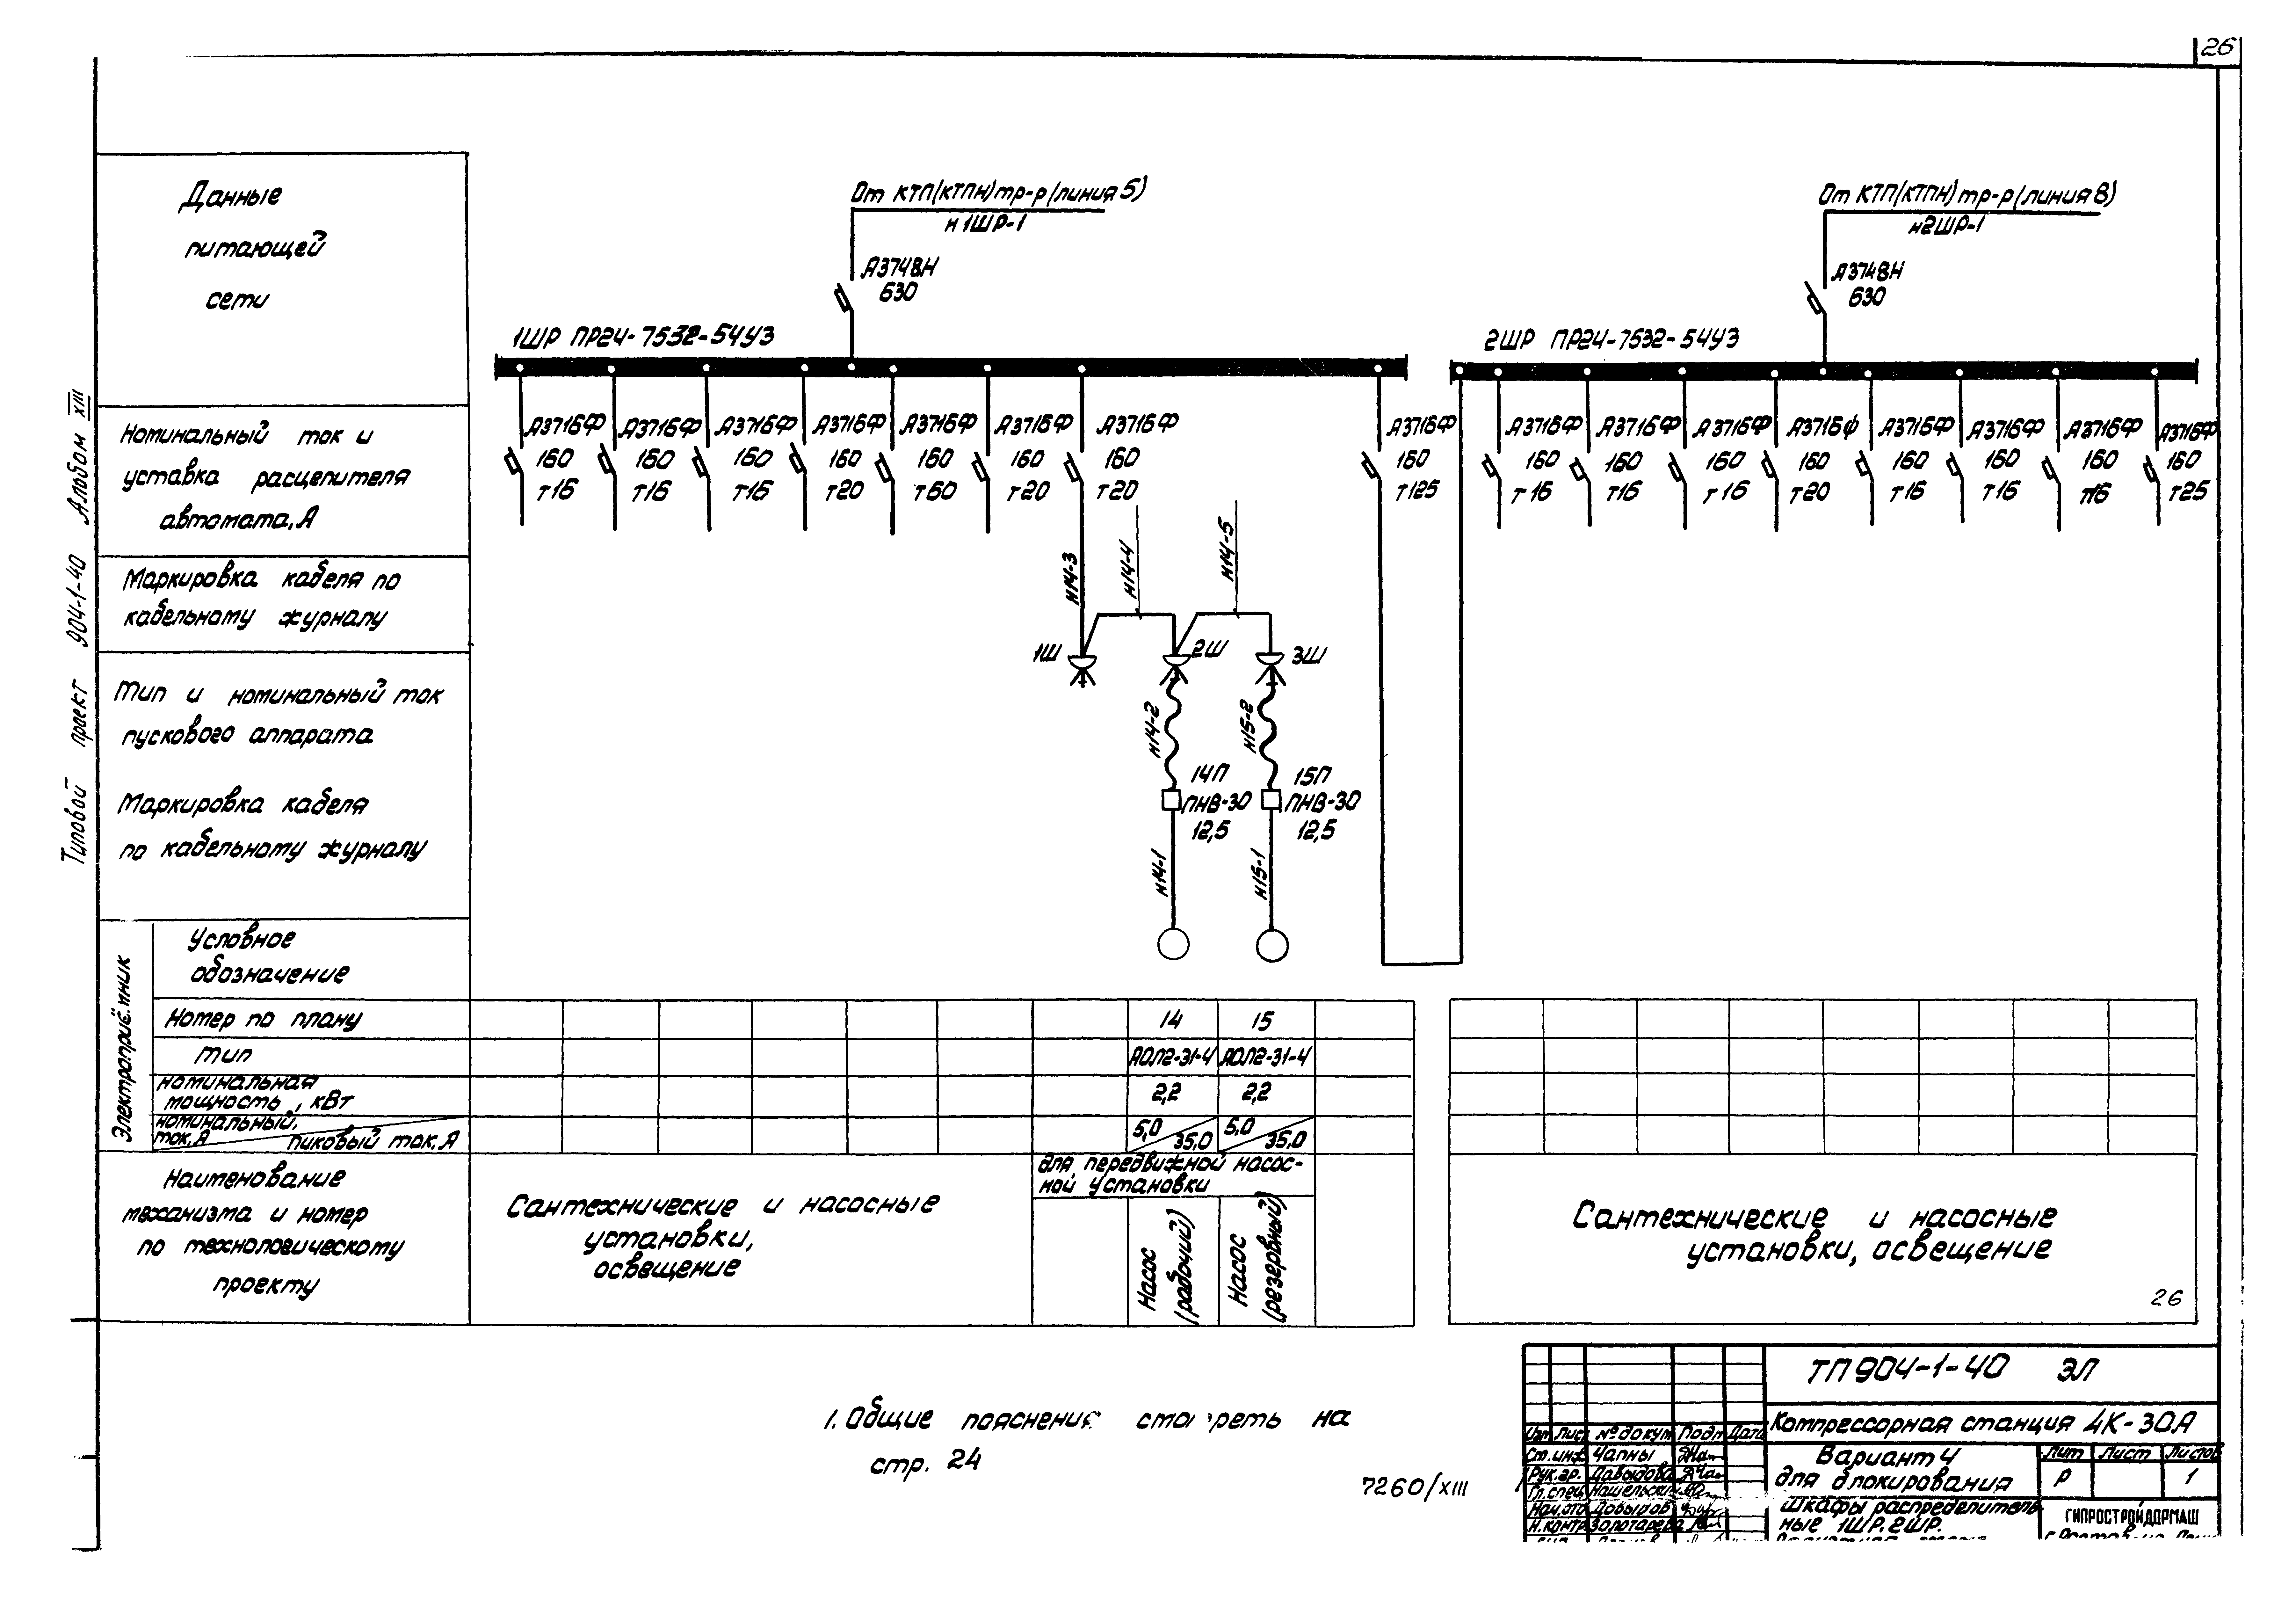 26
Типовой проект 904-1-40 Альбом XIII
Данные
питающей
сети
Номинальный ток и
уставка расцепителя
автомата, А
Маркировка кабеля по
кабельному журналу
Тип и номинальный ток
пускового аппарата
Маркировка кабеля
по кабельному журналу
Электроприёмник
Условное
обозначение
Номер по плану
Тип
номинальная
мощность, кВт
номинальный,
ток, А
пиковый ток, А
Наименование
механизма и номер
по технологическому
проекту
От КТП(КТПН) тр-р (линия 5)
н1ШР-1
А3748Н
630
1ШР ПР24-7532-54У3
А3716Ф А3716Ф А3716Ф А3716Ф А3716Ф А3716Ф А3716Ф А3716Ф
160 160 160 160 160 160 160 160
т16 т16 т16 т20 т60 т20 т20 т125
н14-3
н14-4
н14-5
1Ш
2Ш
3Ш
н14-2
н15-2
14П
ПНВ-30
12,5
15П
ПНВ-30
12,5
н14-1
н15-1
От КТП(КТПН) тр-р (линия 8)
н2ШР-1
А3748Н
630
2ШР ПР24-7532-54У3
А3716Ф А3716Ф А3716Ф А3716Ф А3716Ф А3716Ф А3716Ф А3716Ф
160 160 160 160 160 160 160 160
т16 т16 т16 т20 т16 т16 т16 т25
14 15
АОЛ2-31-4 АОЛ2-31-4
2,2 2,2
5,0 35,0 5,0 35,0
для передвижной насос-
ной установки
Сантехнические и насосные
установки,
освещение
Насос
(рабочий)
Насос
(резервный)
Сантехнические и насосные
установки, освещение
26
1. Общие пояснения смотреть на
стр. 24
7260/XIII
ТП 904-1-40 ЭЛ
Компрессорная станция 4К-30А
Изм Лист № докум Подп Дата
Ст. инж Чапны
Рук. гр. Давыдова
Гл. спец
Нач. отд Давыдов
Н. контр Золотарева
Вариант 4
для блокирования
Лит Лист Листов
Р 1
Шкафы распределитель
ные 1ШР, 2ШР.
ГИПРОСТРОЙДОРМАШ